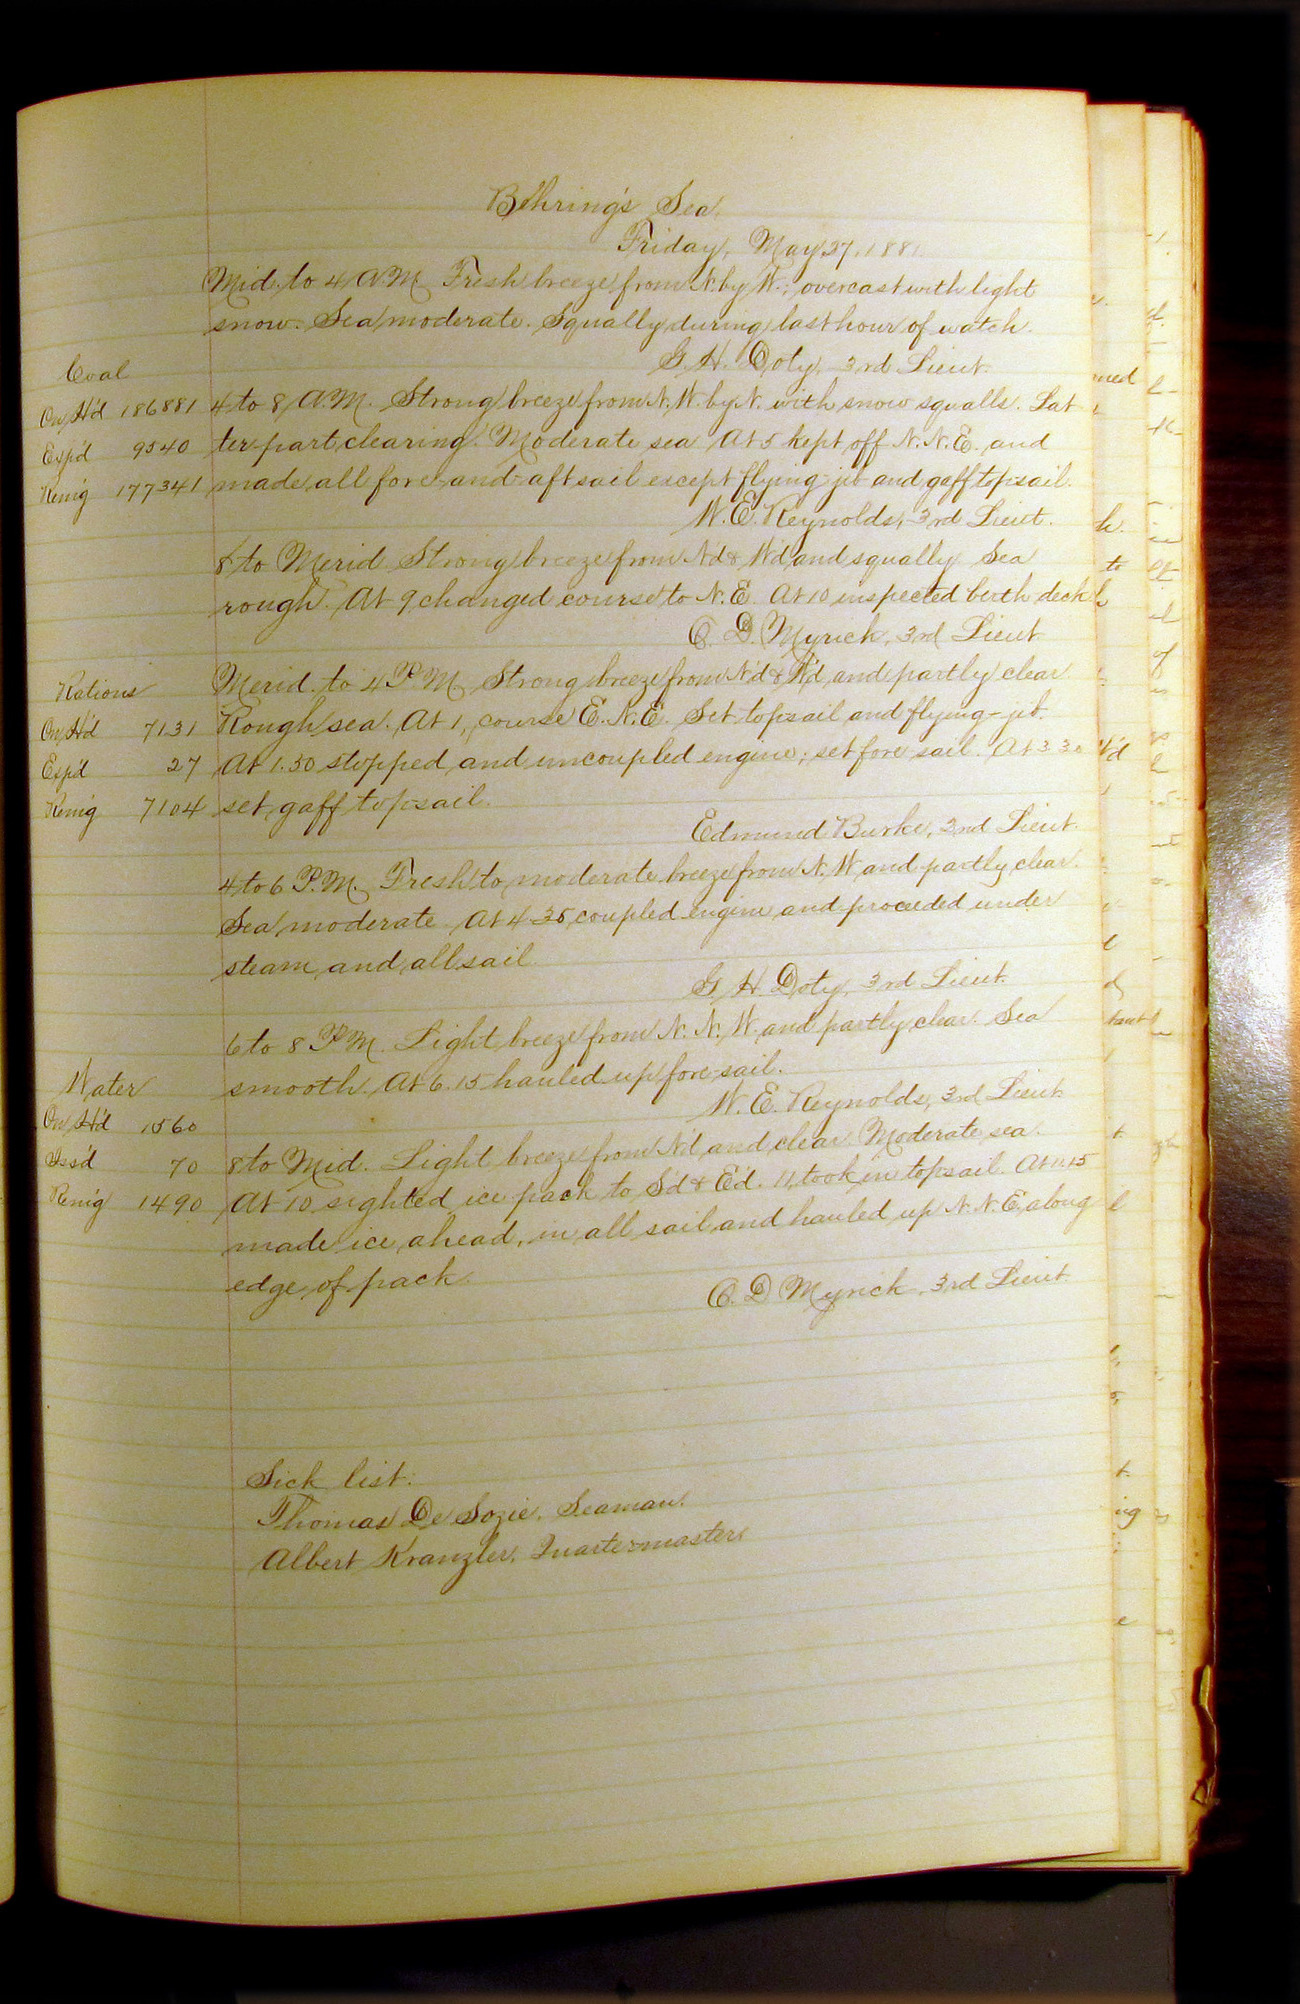 Behring's Sea.
Friday, May 27, 1881.
Mid. to 4 A.M. Fresh breeze from N. by W.; overcast with light
snow. Sea moderate. Squally during last hour of watch.
G. H. Doty, 3rd Lieut.
Coal
On H'd 186881
Exp'd 9540
Rem'g 177341
4 to 8 A.M. Strong breeze from N.W. by N. with snow squalls. Lat
ter part clearing. Moderate sea. At 5 kept off N.N.E. and
made all fore-and-aft sail except flying jib and gaff topsail.
W. E. Reynolds, 3rd Lieut.
8 to Merid. Strong breeze from N'd & W'd and squally. Sea
rough. At 9 changed course to N.E. At 10 inspected berth deck
O. D. Myrick, 3rd Lieut.
Rations
On H'd 7131
Exp'd 27
Rem'g 7104
Merid. to 4 P.M. Strong breeze from N'd & W'd and partly clear
Rough sea. At 1, course E.N.E. Set topsail and flying-jib.
At 1.30 stopped and uncoupled engine; set fore sail. At 3.30
set gaff topsail.
Edmund Burke, 2nd Lieut.
4 to 6 P.M. Fresh to moderate breeze from N.W. and partly clear.
Sea moderate. At 4.35 coupled engine and proceeded under
steam and all sail
G. H. Doty, 3rd Lieut.
6 to 8 P.M. Light breeze from N.N.W. and partly clear. Sea
smooth. At 6.15 hauled up fore-sail.
W. E. Reynolds, 3rd Lieut.
Water
On H'd 1560
Iss'd 70
Rem'g 1490
8 to Mid. Light breeze from N'd and clear. Moderate sea.
At 10 sighted ice pack to S'd & E'd. 11 took in topsail. At 11.15
made ice ahead, in all sail and hauled up N.N.E. along
edge of pack.
O. D. Myrick, 3rd Lieut.
Sick list:
Thomas De Sozie, Seaman.
Albert Kranzler, Quartermaster